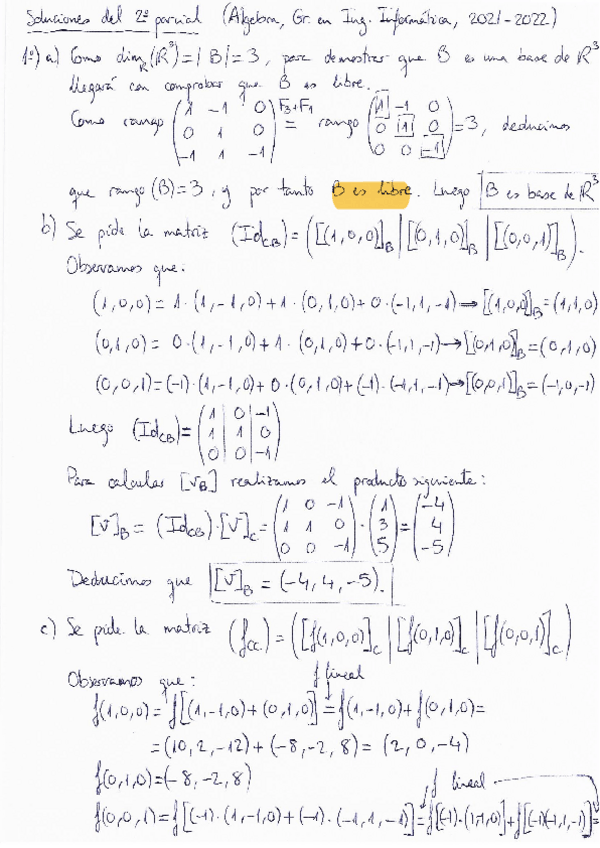 Soluciones del 2º parcial (Álgebra, Gr. en Ing. Informática, 2021-2022)
1º) a) Como dim_R(R³)=|B|=3, para demostrar que B es una base de R³
llegará con comprobar que B es libre.
Como rango (1 -1 0 / 0 1 0 / -1 1 -1) =^{F3+F1} rango (1 -1 0 / 0 1 0 / 0 0 -1) = 3, deducimos
que rango (B)=3, y por tanto B es libre. Luego B es base de R³
b) Se pide la matriz (Id_CB)=([(1,0,0)]_B | [(0,1,0)]_B | [(0,0,1)]_B).
Observamos que:
(1,0,0)=1·(1,-1,0)+1·(0,1,0)+0·(-1,1,-1)→[(1,0,0)]_B=(1,1,0)
(0,1,0)=0·(1,-1,0)+1·(0,1,0)+0·(-1,1,-1)→[(0,1,0)]_B=(0,1,0)
(0,0,1)=(-1)·(1,-1,0)+0·(0,1,0)+(-1)·(-1,1,-1)→[(0,0,1)]_B=(-1,0,-1)
Luego (Id_CB)=(1 | 0 | -1 / 1 | 1 | 0 / 0 | 0 | -1)
Para calcular [v_B] realizamos el producto siguiente:
[v]_B = (Id_CB)·[v]_C = (1 0 -1 / 1 1 0 / 0 0 -1)·(1 / 3 / 5) = (-4 / 4 / -5)
Deducimos que [v]_B = (-4, 4, -5).
c) Se pide la matriz (f_CC)=([f(1,0,0)]_C | [f(0,1,0)]_C | [f(0,0,1)]_C)
Observamos que: f lineal
f(1,0,0)=f[(1,-1,0)+(0,1,0)]=f(1,-1,0)+f(0,1,0)=
=(10,2,-12)+(-8,-2,8)=(2,0,-4)
f(0,1,0)=(-8,-2,8)
f lineal
f(0,0,1)=f[(-1)·(1,-1,0)+(-1)·(-1,1,-1)]=f[(-1)·(1,-1,0)]+f[(-1)(-1,1,-1)]=